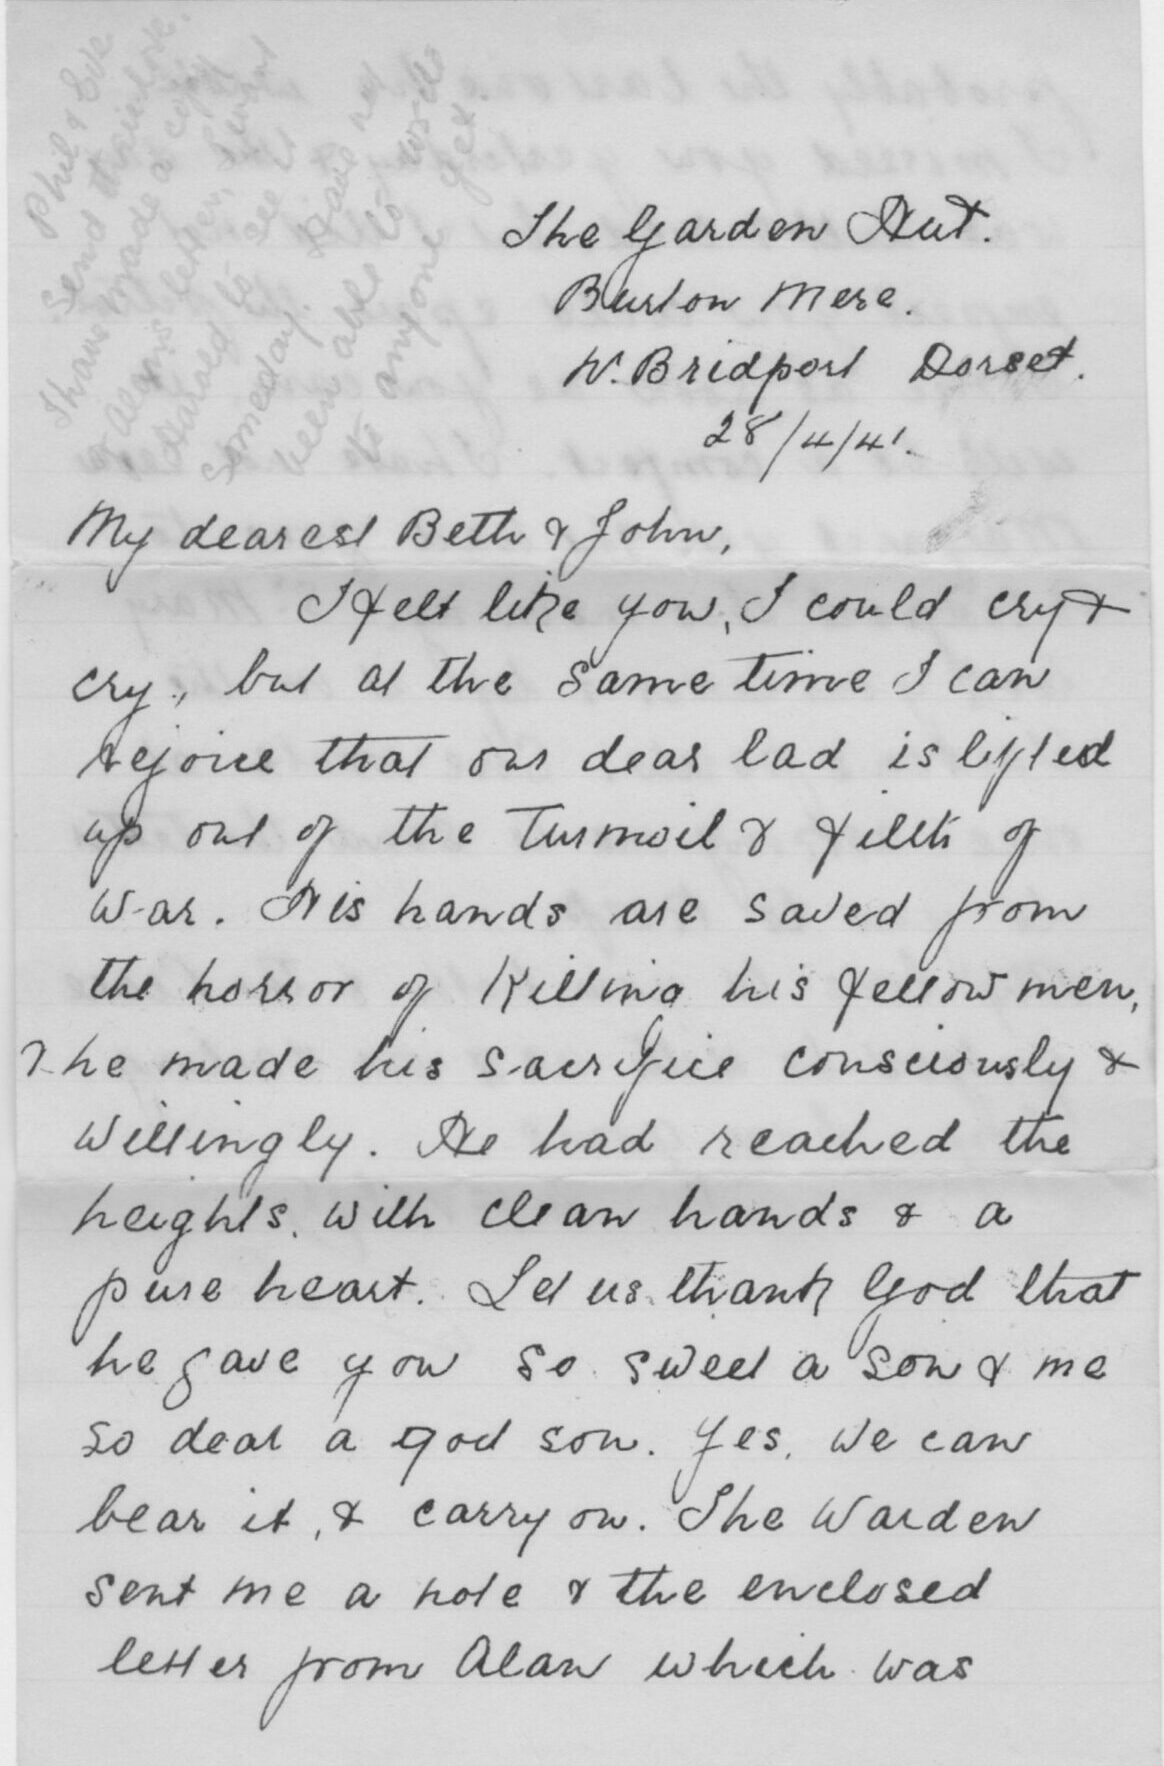 Phil & Eve
send their love.
I have made a copy
of Alan's letter, I want
Harold to see it
someday. I have not
been able to write
to anyone yet
The Garden Hut.
Burton Mere.
N. Bridport Dorset.
28/4/41.
My dearest Beth & John,
I felt like you, I could cry &
cry, but at the same time I can
rejoice that our dear lad is lifted
up out of the turmoil & filth of
war. His hands are saved from
the horror of killing his fellow men,
& he made his sacrifice consciously &
willingly. He had reached the
heights, with clean hands & a
pure heart. Let us thank God that
he gave you so sweet a son & me
so dear a god son. Yes, we can
bear it, & carry on. The Warden
sent me a note & the enclosed
letter from Alan which was